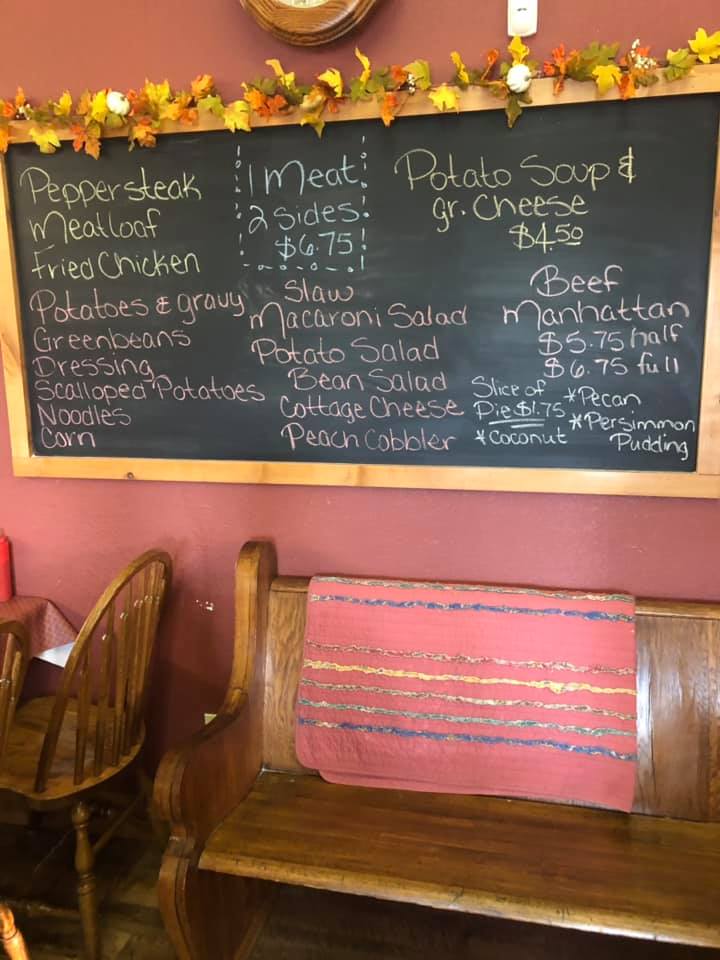 Peppersteak
Meatloaf
Fried Chicken
1 Meat
2 sides
$6.75
Potato Soup &
gr. Cheese
$4.50
Potatoes & gravy
Greenbeans
Dressing
Scalloped Potatoes
Noodles
Corn
Slaw
Macaroni Salad
Potato Salad
Bean Salad
Cottage Cheese
Peach Cobbler
Beef
Manhattan
$5.75 half
$6.75 full
Slice of
Pie $1.75
*Coconut
*Pecan
*Persimmon
Pudding